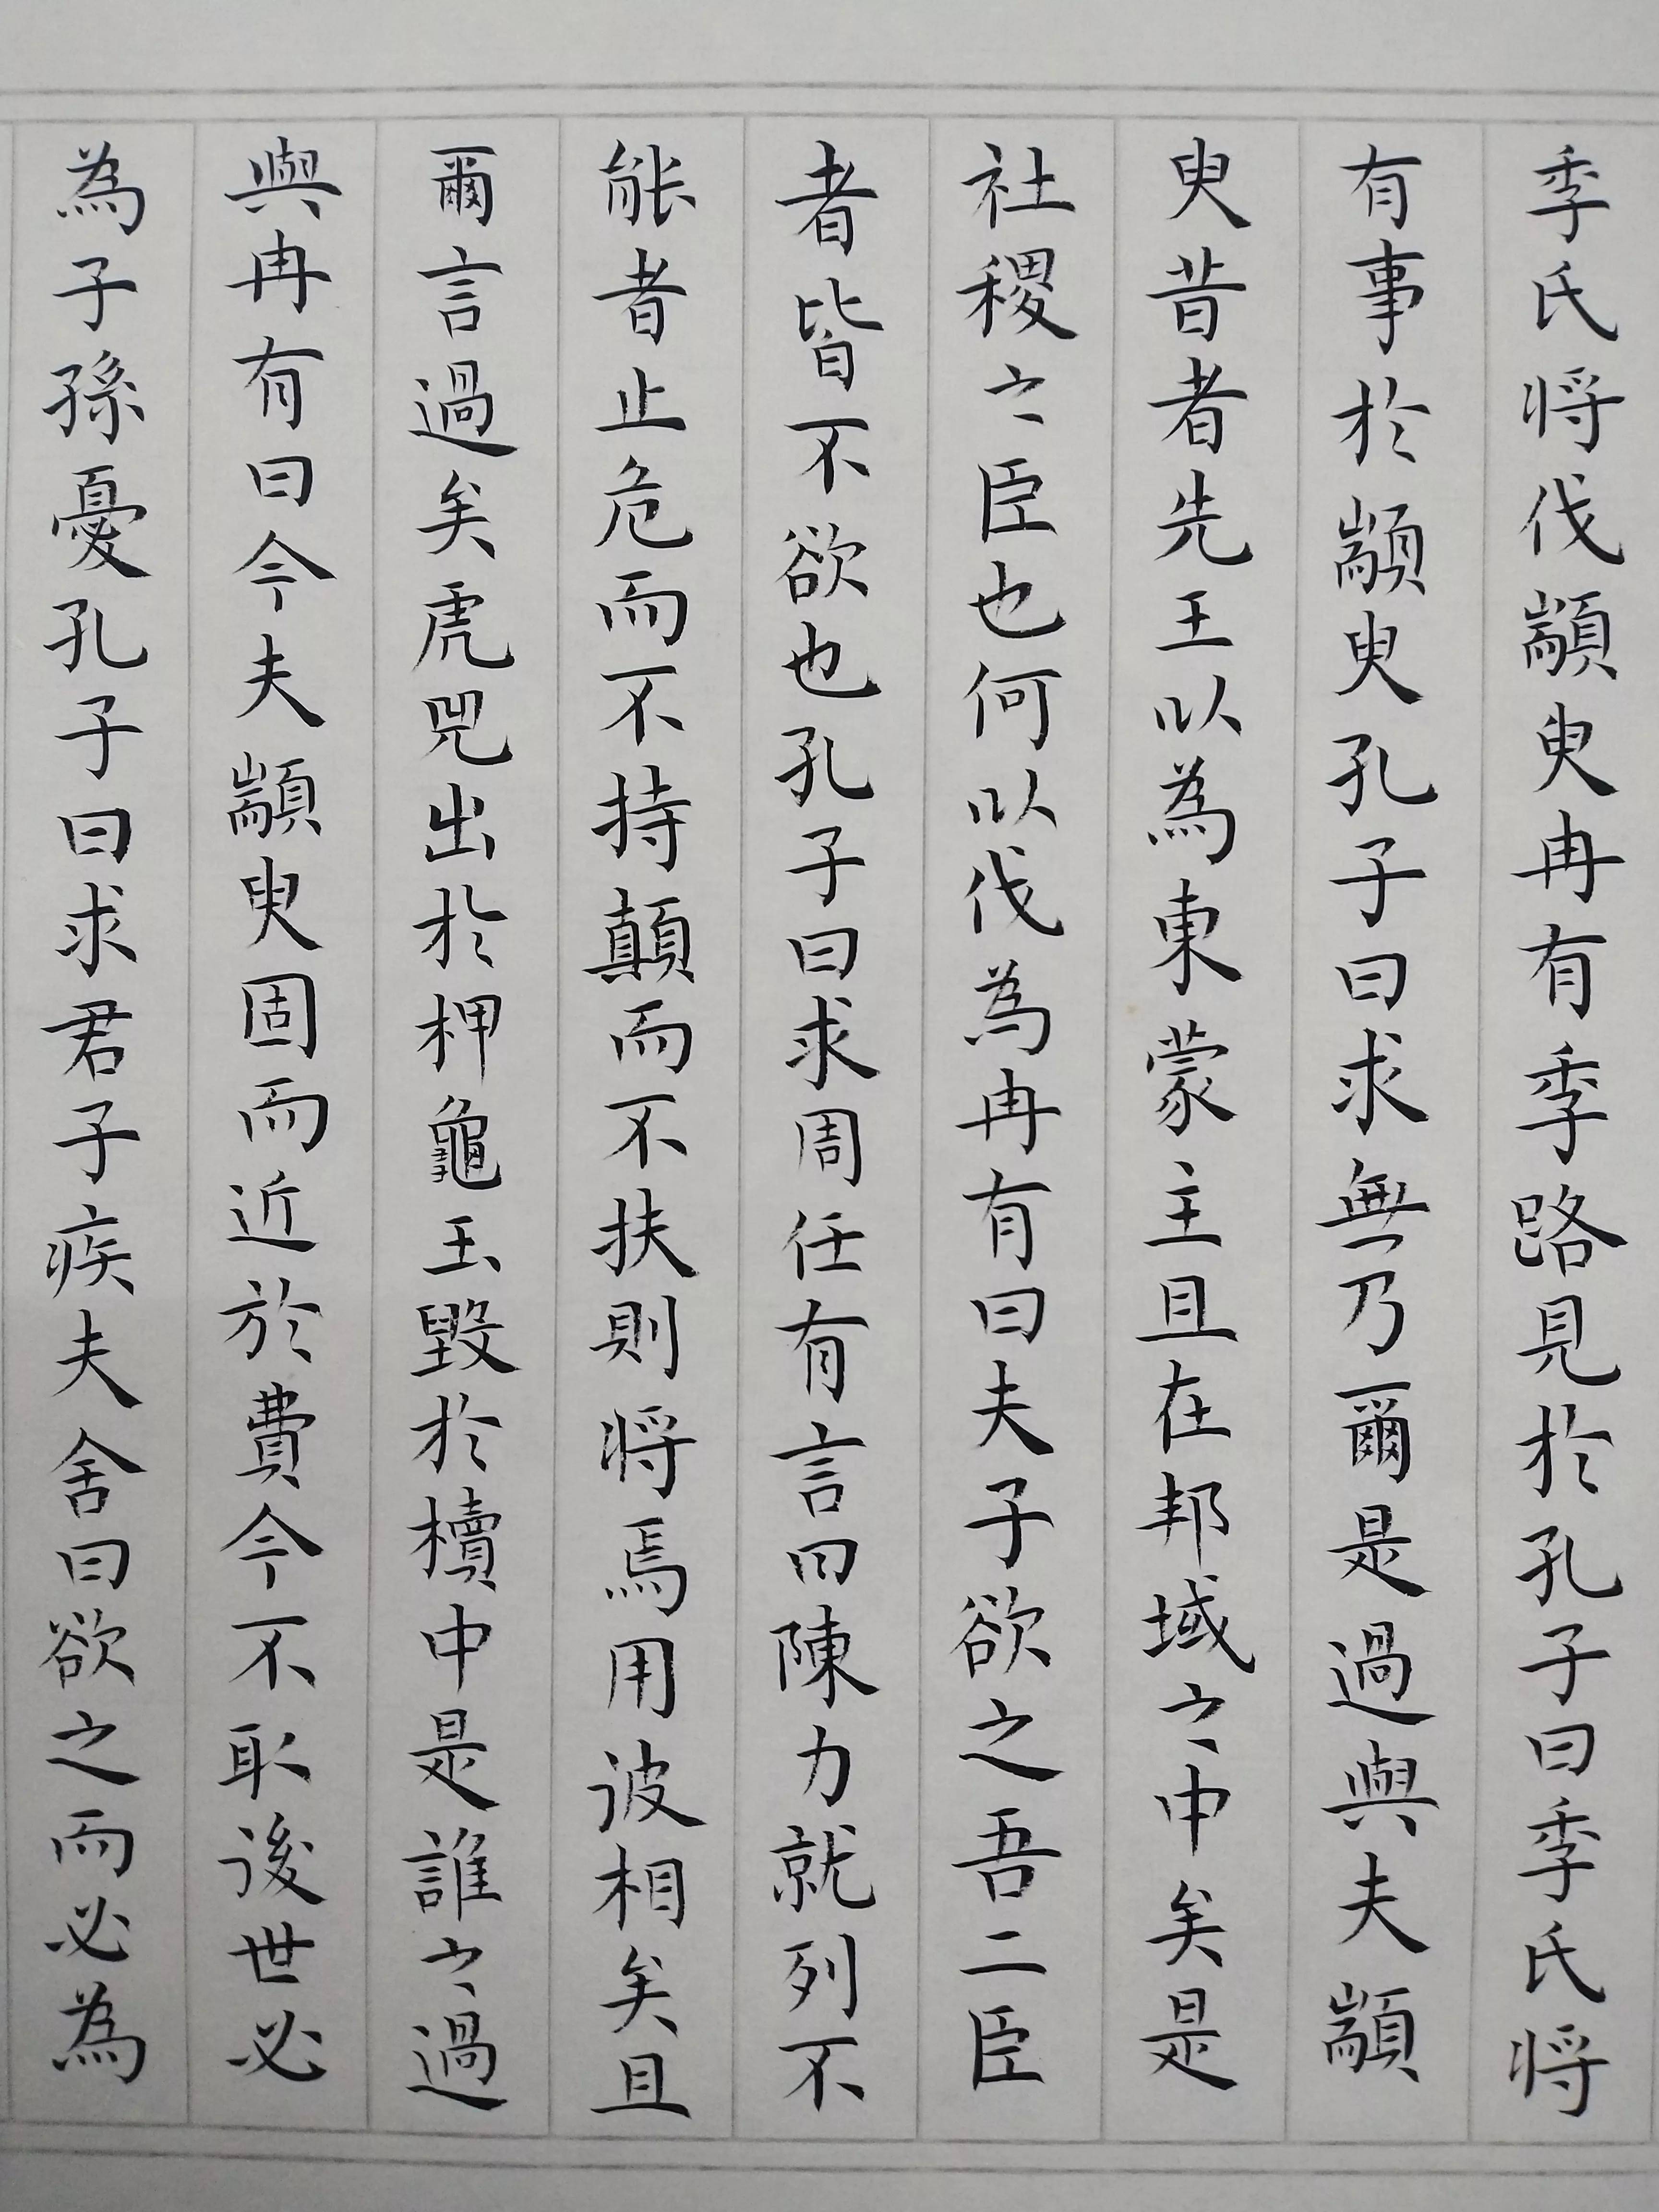 季氏将伐顓臾冉有季路見於孔子曰季氏将
有事於顓臾孔子曰求無乃爾是過與夫顓
臾昔者先王以為東蒙主且在邦域之中矣是
社稷之臣也何以伐為冉有曰夫子欲之吾二臣
者皆不欲也孔子曰求周任有言曰陳力就列不
能者止危而不持顛而不扶則将焉用彼相矣且
爾言過矣虎兕出於柙龜玉毀於櫝中是誰之過
與冉有曰今夫顓臾固而近於費今不取後世必
為子孫憂孔子曰求君子疾夫舍曰欲之而必為